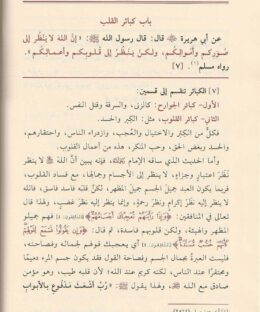 باب كبائر القلب
عن أبي هريرة قال: قال رسول الله ﷺ: «إنَّ الله لا ينظر إلى
صُوَرِكم وأموالِكم، ولكن ينظُرُ إلى قلوبكم وأعمالكم».
رواه مسلم(١). [٧]
[٧] الكبائر تنقسم إلى قسمين:
الأول- كبائر الجوارح: كالزنى، والسرقة وقتل النفس.
الثاني- كبائر القلب، مثل: الكبر والحسد.
فكلٌّ من الكِبْرِ والاختيال والعُجب، وازدراء الناس، واحتقارهم،
والحسد وبغض الحق، وحب المنكر، هذه من أعمال القلوب.
وأما الحديث الذي ساقه الإمام فإنه يبين أنَّ الله لا ينظر
نظر اعتبارٍ وجزاءٍ، لا ينظر إلى الأجسام وجمالها، مع فساد القلوب،
فربما يكون العبد جميل الجسم جميل المظهر، لكنَّ قلبه فاسد فاسق، فالله
لا ينظر إليه نظر إكرامٍ ونظر رحمةٍ، وإنما ينظر إليه نظر غضبٍ، ولهذا قال
تعالى في المنافقين: ﴿وَإِذَا رَأَيْتَهُمْ تُعْجِبُكَ أَجْسَامُهُمْ﴾ فهم جميلو
المظهر والهيئة، ولكن قلوبهم فاسدة، ثم قال: ﴿وَإِن يَقُولُوا تَسْمَعْ لِقَوْلِهِمْ﴾
أي يعجبك قولهم لجماله وفصاحته،
فليست العبرة بجمال الجسم وفصاحة القول فقد يكون جسم المرء دميمًا
ومحتقرًا عند الناس، لكنه كريم عند الله؛ لأن قلبه طيب، وهو مؤمن
صادق مع الله ولهذا يقول ﷺ: «رُبَّ أشعث مدفوع بالأبواب